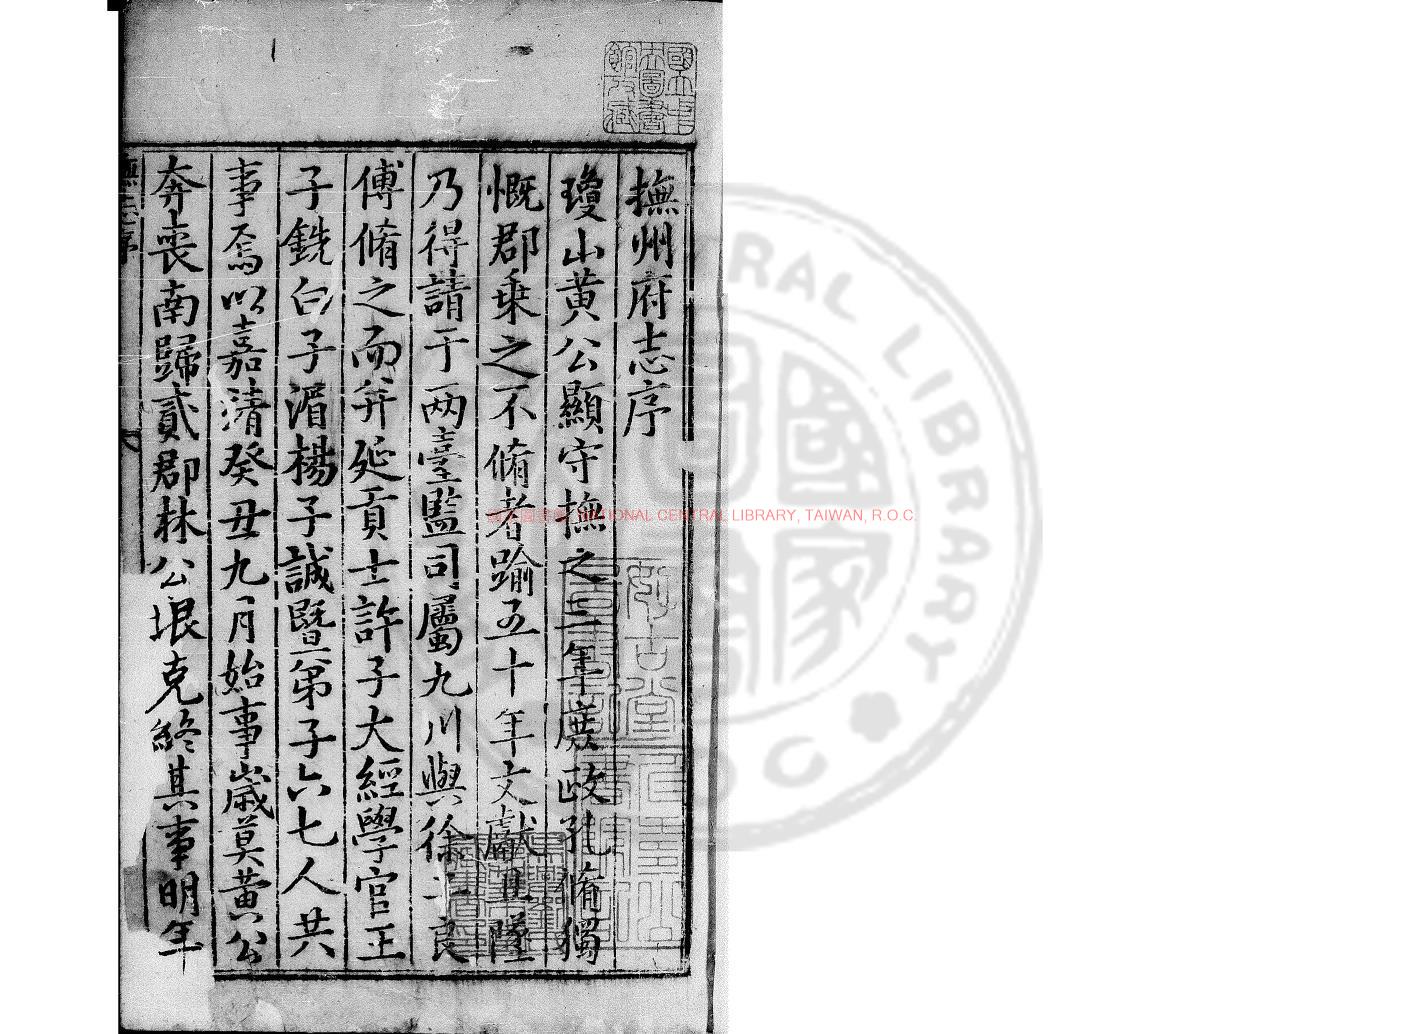 撫州府志序
瓊山黄公顯守撫之三年庻政孔脩獨
慨郡乗之不脩者踰五十年文獻且墜
乃得請于两臺監司屬九川與徐子良
傅脩之而并延貢士許子大經學官王
子銑白子湄楊子誠暨弟子六七人共
事焉以嘉清癸丑九月始事歳莫黄公
奔喪南歸貳郡林公垠克終其事明年
撫志序
國立中央圖書館收藏
NATIONAL CENTRAL LIBRARY, TAIWAN, R.O.C.